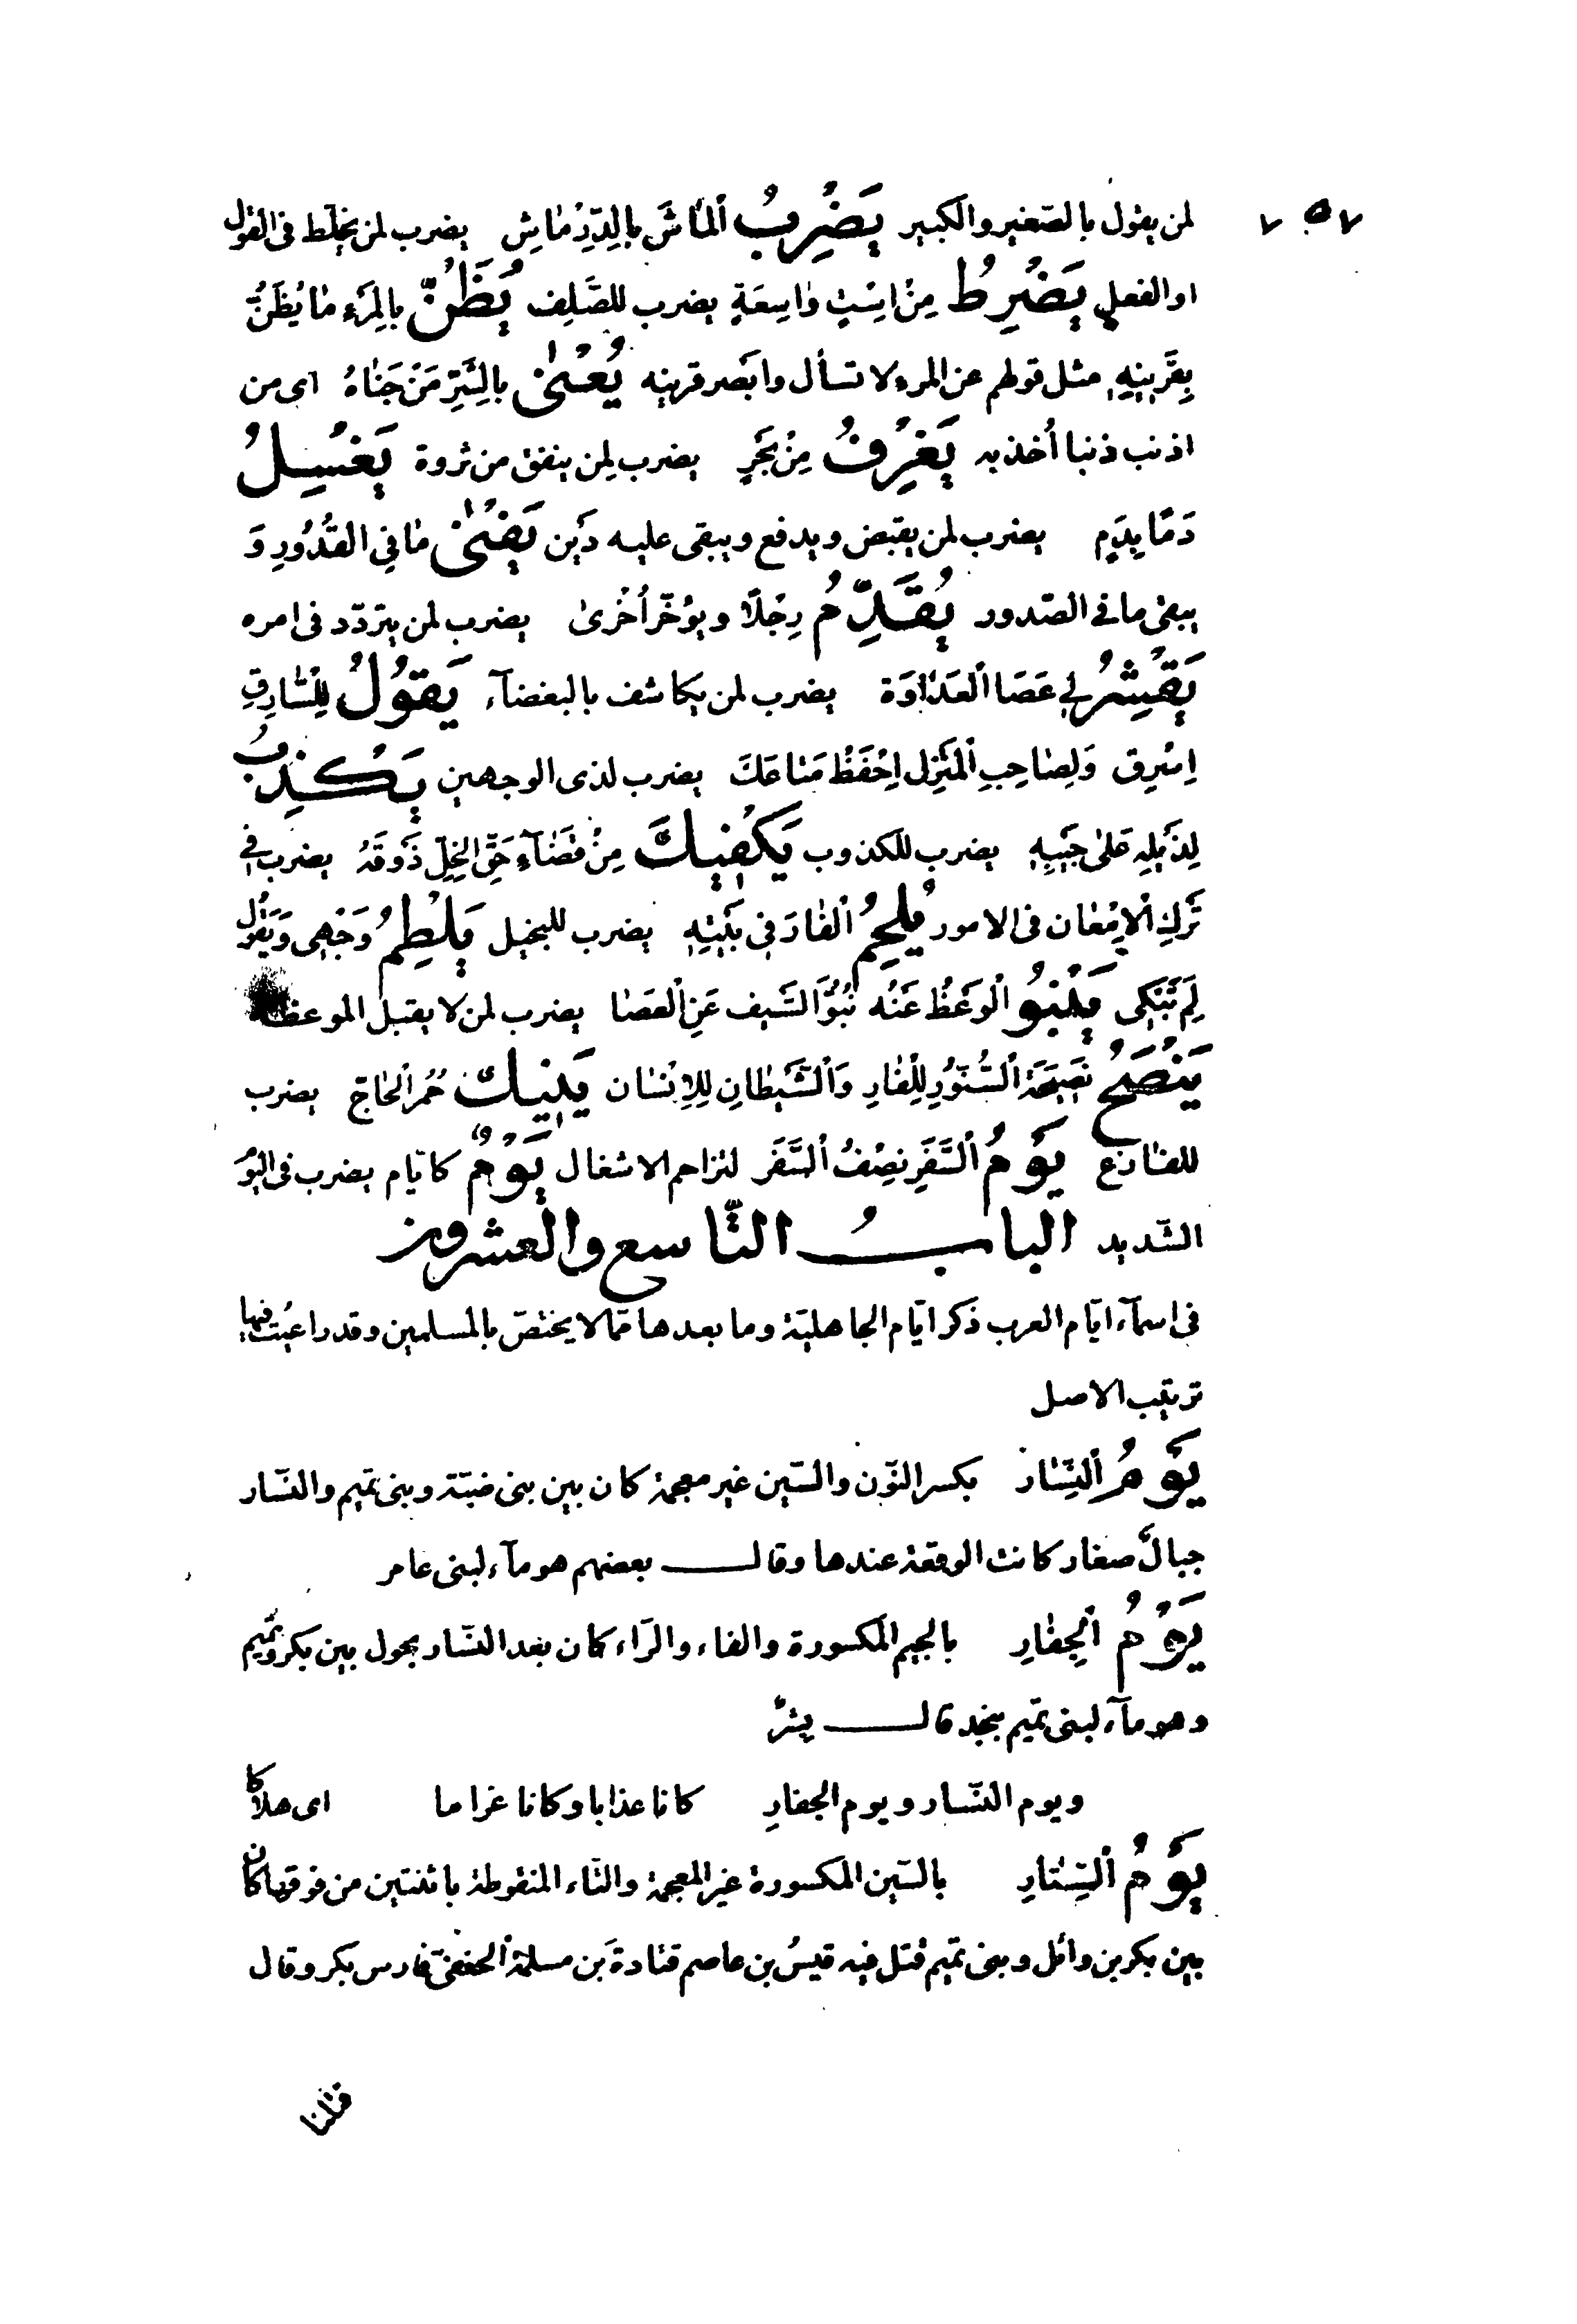 ٧٥٧
لمن يقول بالصّغير والكبير يَضْرِبُ ٱلمَاشَ بِالدِّرْمَاشِ يضرب لمن يخلّط فى القول
او الفعل يَضْرِطُ مِنْ اِسْتٍ وَاسِعَةٍ يضرب للصَّلِف يُظَنُّ بِالمَرْءِ مَا يُظَنُّ
بِقَرِينِهِ مثل قولهم عن المرء لا تسأل وابصر قرينه يُعْنىٰ بِالشَّرِّ مَنْ جَنَاهُ اى من
اذنب ذنبا أُخذ به يَغْرِفُ مِنْ بَحْرٍ يضرب لمن ينفق من ثروة يَغْسِلُ
دَمًا بِدَمٍ يضرب لمن يقبض ويدفع ويبقى عليه دَين يَفْنىٰ مَا فِي القُدُورِ وَ
يبقى ما فى الصّدور يُقَدِّمُ رِجْلًا ويؤخّر أُخْرىٰ يضرب لمن يتردّد فى امره
يَقْشِرُ لِي عَصَا ٱلعَدَاوَة يضرب لمن يكاشف بالبغضآء يَقُولُ لِلسَّارِقِ
اِسْرِق وَلِصَاحِبِ ٱلمَنْزِلِ اِحْفَظْ مَتَاعَكَ يضرب لذى الوجهين يَكْذِبُ
لِذَيْلِهِ عَلىٰ جَيْبِهِ يضرب للكذوب يَكْفِيكَ مِنْ قَضَآءِ حَقِّ الخِلِّ ذَوقَهُ يضرب فى
تَرْكِ ٱلاِمْعَان فى الامور يُلْجِمُ ٱلفَارَ فِي بَيْتِهِ يضرب للبخيل يَلْطِمُ وَجْهِى وَيَقُول
لِمَ تَبْكِى يَنْبُو ٱلوَعْظُ عَنْهُ نُبُوَّ ٱلسَّيف عَنِ ٱلعَصَا يضرب لمن لا يقبل الموعظة
يَنْصَحُ نَصِيحَةَ ٱلسِّنَّوْرِ لِلْفَارِ وَٱلشَّيْطَانِ لِلاِنْسَان يَنِيكُ حُمُر ٱلحَاجّ يضرب
للفارغ يَوْمُ ٱلسَّفَرِ نِصْفُ ٱلسَّفَر لتزاحم الاشغال يَوْمٌ كايّام يضرب فى اليوْم
الشّديد البابُ التّاسع والعشرون
فى اسمآء ايّام العرب ذكر ايّام الجاهليّة وما بعدها ممّا لا يختصّ بالمسلمين وقد راعيت فيها
ترتيب الاصل
يَوْمُ ٱلنِّسَار بكسر النّون والسّين غير معجمة كان بين بنى ضبّة وبنى تميم والنّسار
جبالٌ صغار كانت الوقعة عندها وقال بعضهم هو مآء لبنى عامر
يَوْمُ ٱلجِفَارِ بالجيم المكسورة والفاء والرّاء كان بعد النّسار بحول بين بكر وتميم
وهو مآء لبنى تميم بنجد قال بشرٌ
ويوم النّسار ويوم الجفارِ كانا عذابا وكانا غراما اى هلاكا
يَوْمُ ٱلسِّتَارِ بالسّين المكسورة غير المعجمة والتّاء المنقوطة باثنتين من فوقها كان
بين بكر بن وائل وبنى تميم قتل فيه قيسُ بن عاصم قتادةَ بن مسلمة ٱلحنفىّ فارس بكر وقال